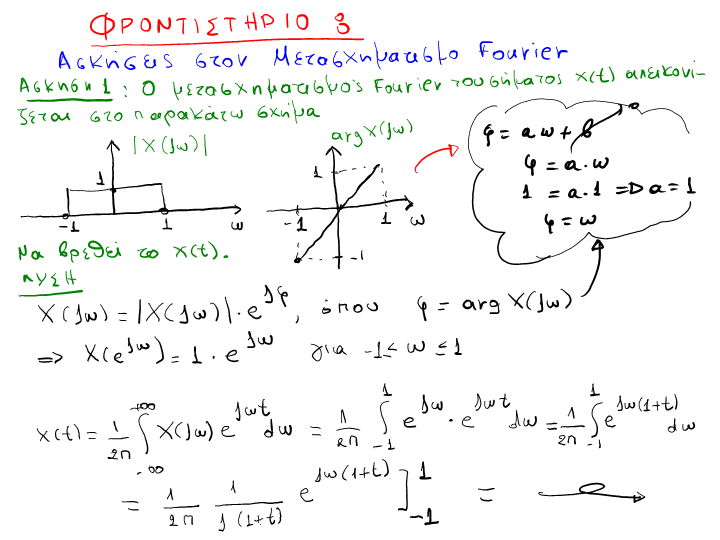 ΦΡΟΝΤΙΣΤΗΡΙΟ 8
Ασκήσεις στον Μετασχηματισμό Fourier
Άσκηση 1: Ο μετασχηματισμός Fourier του σήματος x(t) απεικονί-
ζεται στο παρακάτω σχήμα
|X(jω)|
1
-1 1 ω
arg X(jω)
1
-1 1 ω
-1
φ = aω + b 0
φ = a·ω
1 = a·1 => a = 1
φ = ω
Να βρεθεί το x(t).
ΛΥΣΗ
X(jω) = |X(jω)|·e^{jφ}, όπου φ = arg X(jω)
=> X(e^{jω}) = 1·e^{jω} για -1 ≤ ω ≤ 1
x(t) = 1/2π ∫_{-∞}^{+∞} X(jω) e^{jωt} dω = 1/2π ∫_{-1}^{1} e^{jω}·e^{jωt} dω = 1/2π ∫_{-1}^{1} e^{jω(1+t)} dω
= 1/2π 1/j(1+t) e^{jω(1+t)} ]_{-1}^{1} =